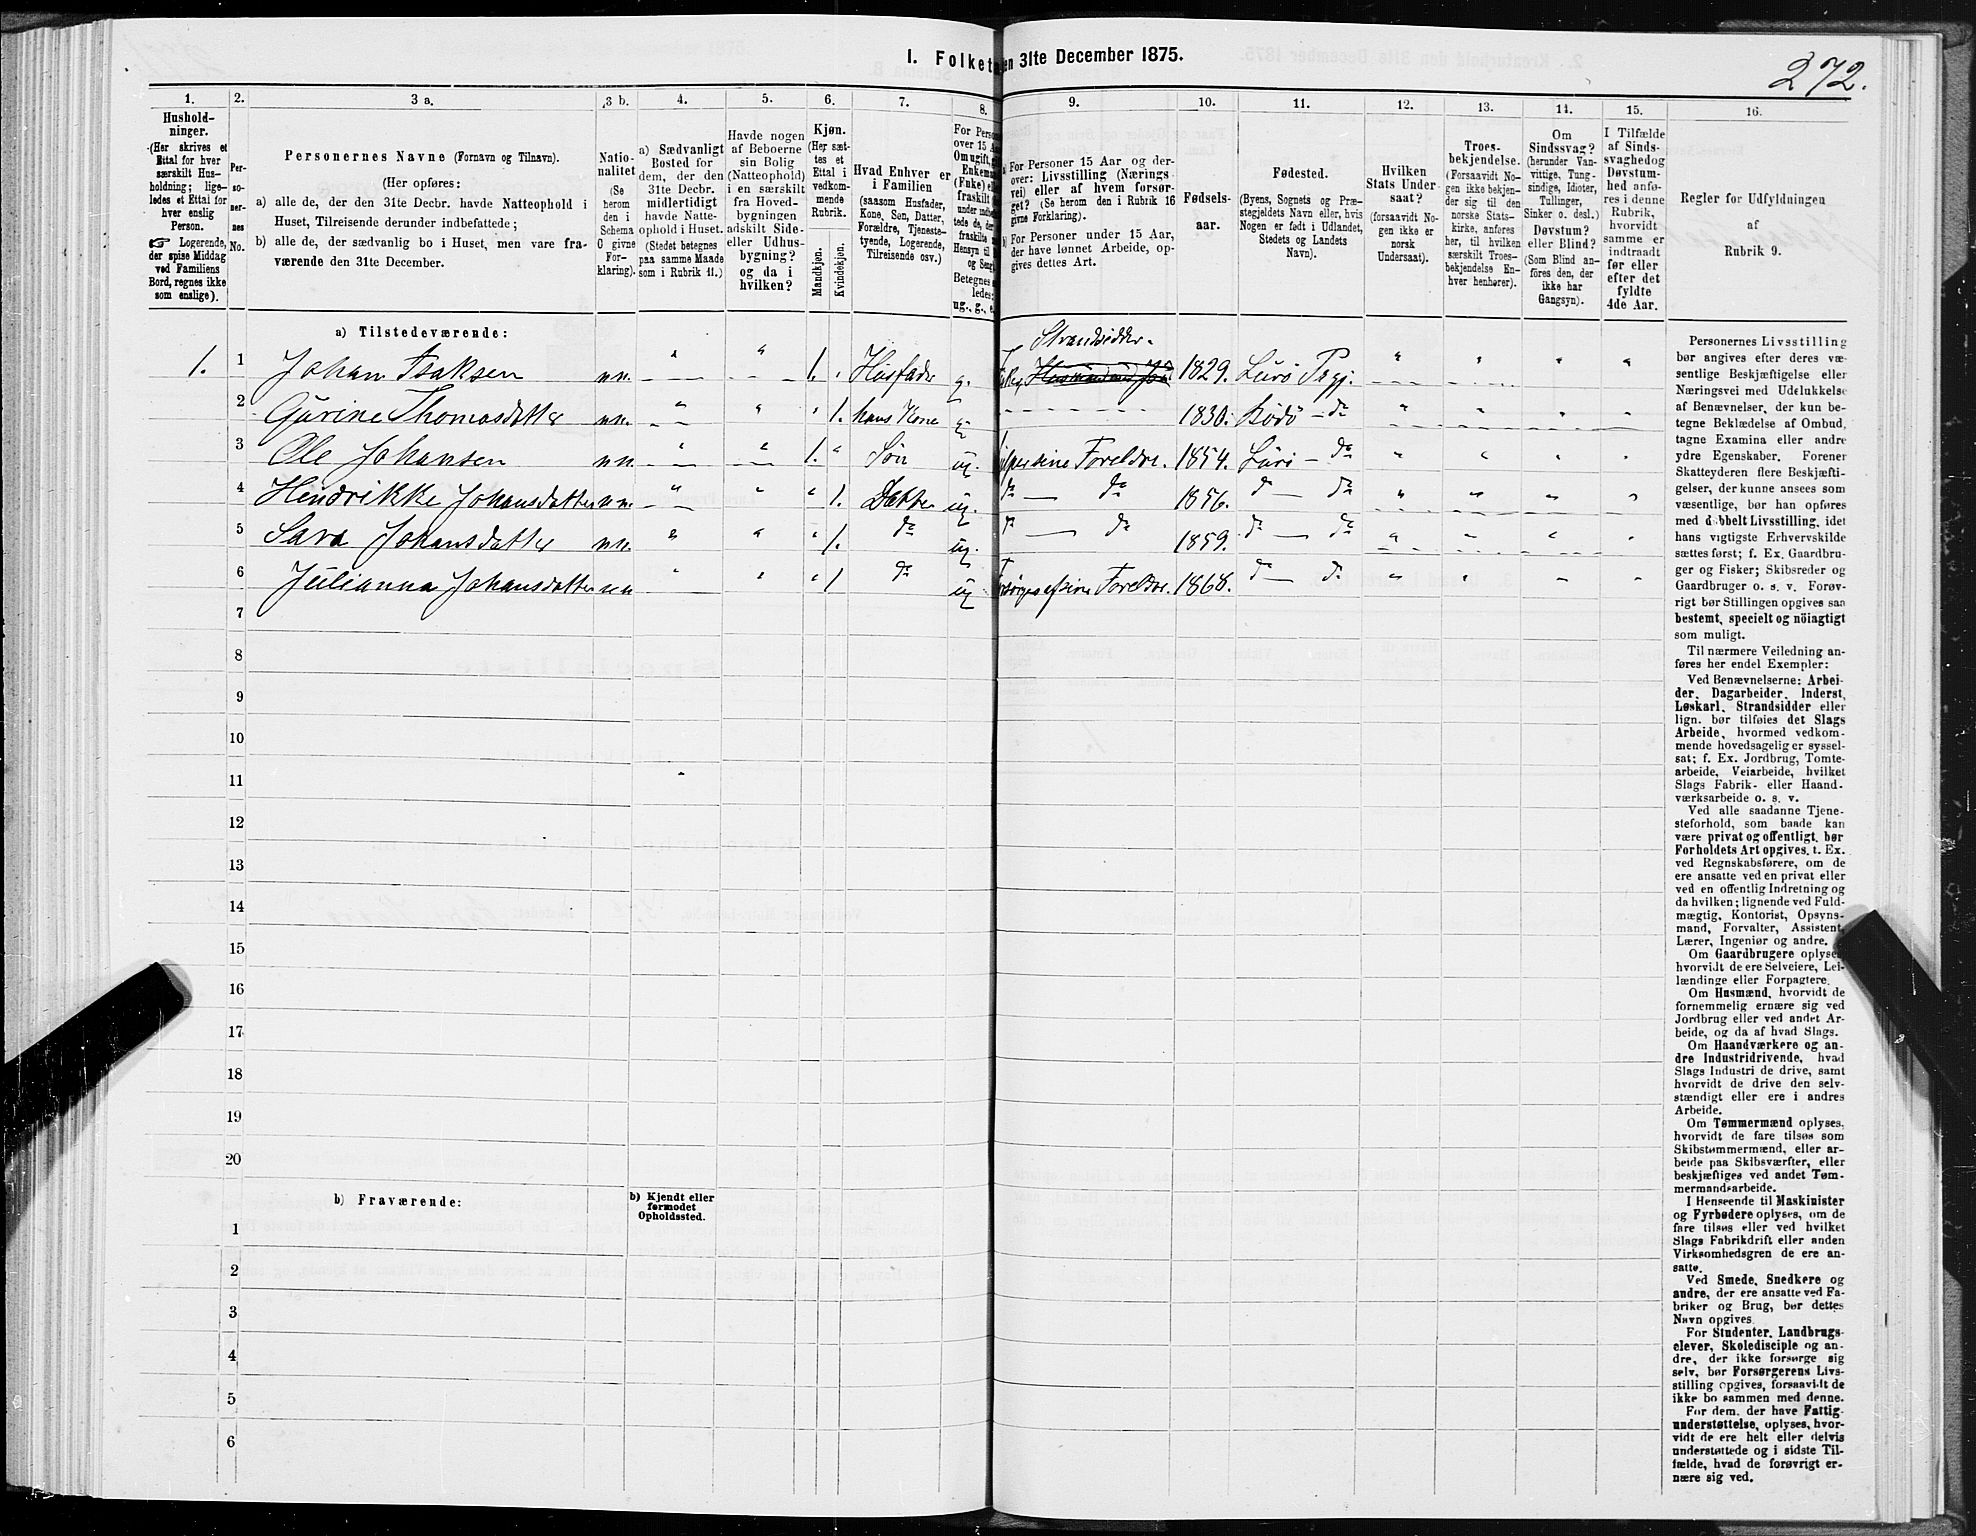 1. Folket en 31te December 1875.
272.
1. 2. 3 a. 3 b. 4. 5. 6. 7. 8. 9. 10. 11. 12. 13. 14. 15. 16.
Hushold-
ninger.
(Her skrives et
Ettal for hver
særskilt Hus-
holdning; lige-
ledes et Ettal for
hver enslig
Person.
☞ Logerende,
der spise Middag
ved Familiens
Bord, regnes ikke
som enslige).
Per-
so-
ner-
nes
No.
Personernes Navne (Fornavn og Tilnavn).
(Her opføres:
a) alle de, der den 31te Decbr. havde Natteophold i
Huset, Tilreisende derunder indbefattede;
b) alle de, der sædvanlig bo i Huset, men vare fra-
værende den 31te December.
Natio-
nalitet
(Se
herom
den i
Schema
C givne
For-
klaring).
a) Sædvanligt
Bosted for
dem, der den
31te Decbr.
midlertidigt
havde Natte-
ophold i Huset.
(Stedet betegnes
paa samme Maade
som i Rubrik 11.)
Havde nogen
af Beboerne
sin Bolig
(Natteophold)
i en særskilt
fra Hoved-
bygningen
adskilt Side-
eller Udhus-
bygning?
og da i
hvilken?
Kjøn.
(Her sæt-
tes et
Ettal i
vedkom-
mende
Rubrik.
Mandkjøn.
Kvindekjøn.
Hvad Enhver er
i Familien
(saasom Husfader,
Kone, Søn, Datter,
Forældre, Tjeneste-
tyende, Logerende,
Tilreisende osv.)
For Perso
over 15 A
Om ugift,
Enkem
(Fuke) e
fraskilt
under indbe
tede de, der
fraskilte
Hensyn til
og Seng
Betegnes
ledes:
ug., g., e
a) For Personer 15 Aar og der-
over: Livsstilling (Nærings-
vei) eller af hvem forsør-
get? (Se herom den i Rubrik 16
givne Forklaring).
b) For Personer under 15 Aar,
der have lønnet Arbeide, op-
gives dettes Art.
Fødsels-
aar.
Fødested.
(Byens, Sognets og Præ-
stegjeldets Navn eller, hvis
Nogen er født i Udlandet,
Stedets og Landets
Navn).
Hvilken
Stats Under-
saat?
(forsaavidt No-
gen ikke er
norsk
Undersaat).
Troes-
bekjendelse.
(Forsaavidt No-
gen ikke bekjen-
der sig til den
norske Stats-
kirke, anføres
her, til hvilken
særskilt Troes-
bekjendelse En-
hver henhører).
Om
Sindssvag?
(herunder Van-
vittige, Tung-
sindige, Idioter,
Tullinger,
Sinker o. desl.)
Døvstum?
eller Blind?
(Som Blind an-
føres den, der
ikke har
Gangsyn).
I Tilfælde
af Sinds-
svaghedog
Døvstum-
hed anfø-
res i denne
Rubrik,
hvorvidt
samme er
indtraadt
før eller
efter det
fyldte
4de Aar.
Regler for Udfyldningen
af
Rubrik 9.
a) Tilstedeværende:
Strandsidder.
1. 1 Johan Isaksen nn. " " 1. " Husfader g. 1829. Lurø Prgj. " " " "
2 Gurine Thomasdatter nn. " " " 1. hans Kone g. 1830. Rödö — do " " " "
3 Ole Johansen nn. " " 1. " Søn ug. sine Foreldre. 1854. Lurö — do " " " "
4 Hendrikke Johansdatter nn. " " " 1. Datter ug. do — do 1856. do — do " " " "
5 Sara Johansdatter nn. " " " 1. do ug. do — do 1859. do — do " " " "
6 Julianna Johansdatter nn " " " 1 do ug sine Foreldre. 1868. do — do " " " "
7
8
9
10
11
12
13
14
15
16
17
18
19
20
b) Fraværende:
b) Kjendt eller
formodet
Opholdssted.
1
2
3
4
5
6
Personernes Livsstilling
bør angives efter deres væ-
sentlige Beskjæftigelse eller
Næringsvei med Udelukkelse
af Benævnelser, der kun be-
tegne Beklædelse af Ombud,
tagne Examina eller andre
ydre Egenskaber. Forener
Skatteyderen flere Beskjæfti-
gelser, der kunne ansees som
væsentlige, bør han opføres
med dobbelt Livsstilling, idet
hans vigtigste Erhvervskilde
sættes først; f. Ex. Gaardbru-
ger og Fisker; Skibsreder og
Gaardbruger o. s. v. Forøv-
rigt bør Stillingen opgives saa
bestemt, specielt og nöiagtigt
som muligt.
Til nærmere Veiledning an-
føres her endel Exempler:
Ved Benævnelserne: Arbei-
der, Dagarbeider, Inderst,
Løskarl, Strandsidder eller
lign. bør tilføies det Slags
Arbeide, hvormed vedkom-
mende hovedsagelig er syssel-
sat; f. Ex. Jordbrug, Tomte-
arbeide, Veiarbeide, hvilket
Slags Fabrik- eller Haand-
værksarbeide o. s. v.
Ved alle saadanne Tjene-
steforhold, som baade kan
være privat og offentligt, bør
Forholdets Art opgives, f. Ex.
ved Regnskabsførere, om de
ere ansatte ved en privat eller
ved en offentlig Indretning og
da hvilken; lignende ved Fuld-
mægtig, Kontorist, Opsyns-
mand, Forvalter, Assistent,
Lærer, Ingeniør og andre.
Om Gaardbrugere oplyses,
hvorvidt de ere Selveiere, Lei-
lændinge eller Forpagtere.
Om Husmænd, hvorvidt de
fornemmelig ernære sig ved
Jordbrug eller ved andet Ar-
beide, og da af hvad Slags.
Om Haandværkere og an-
dre Industridrivende, hvad
Slags Industri de drive, samt
hvorvidt de drive den selv-
stændigt eller ere i andres
Arbeide.
Om Tømmermænd oplyses,
hvorvidt de fare tilsøs som
Skibstømmermænd, eller ar-
beide paa Skibsværfter, eller
beskjæftiges ved andet Tøm-
mermandsarbeide.
I Henseende til Maskinister
og Fyrbødere oplyses, om de
fare tilsøs eller ved hvilket
Slags Fabrikdrift eller anden
Virksomhedsgren de ere an-
satte.
Ved Smede, Snedkere og
andre, der ere ansatte ved Fa-
briker og Brug, bør dettes
Navn opgives.
For Studenter, Landbrugs-
elever, Skoledisciple og an-
dre, der ikke forsørge sig
selv, bør Forsørgerens Livs-
stilling opgives, forsaavidt de
ikke bo sammen med denne.
For dem, der have Fattig-
understøttelse, oplyses, hvor-
vidt de ere helt eller delvis
understøttede og i sidste Til-
fælde, hvad de forøvrigt er-
nære sig ved.